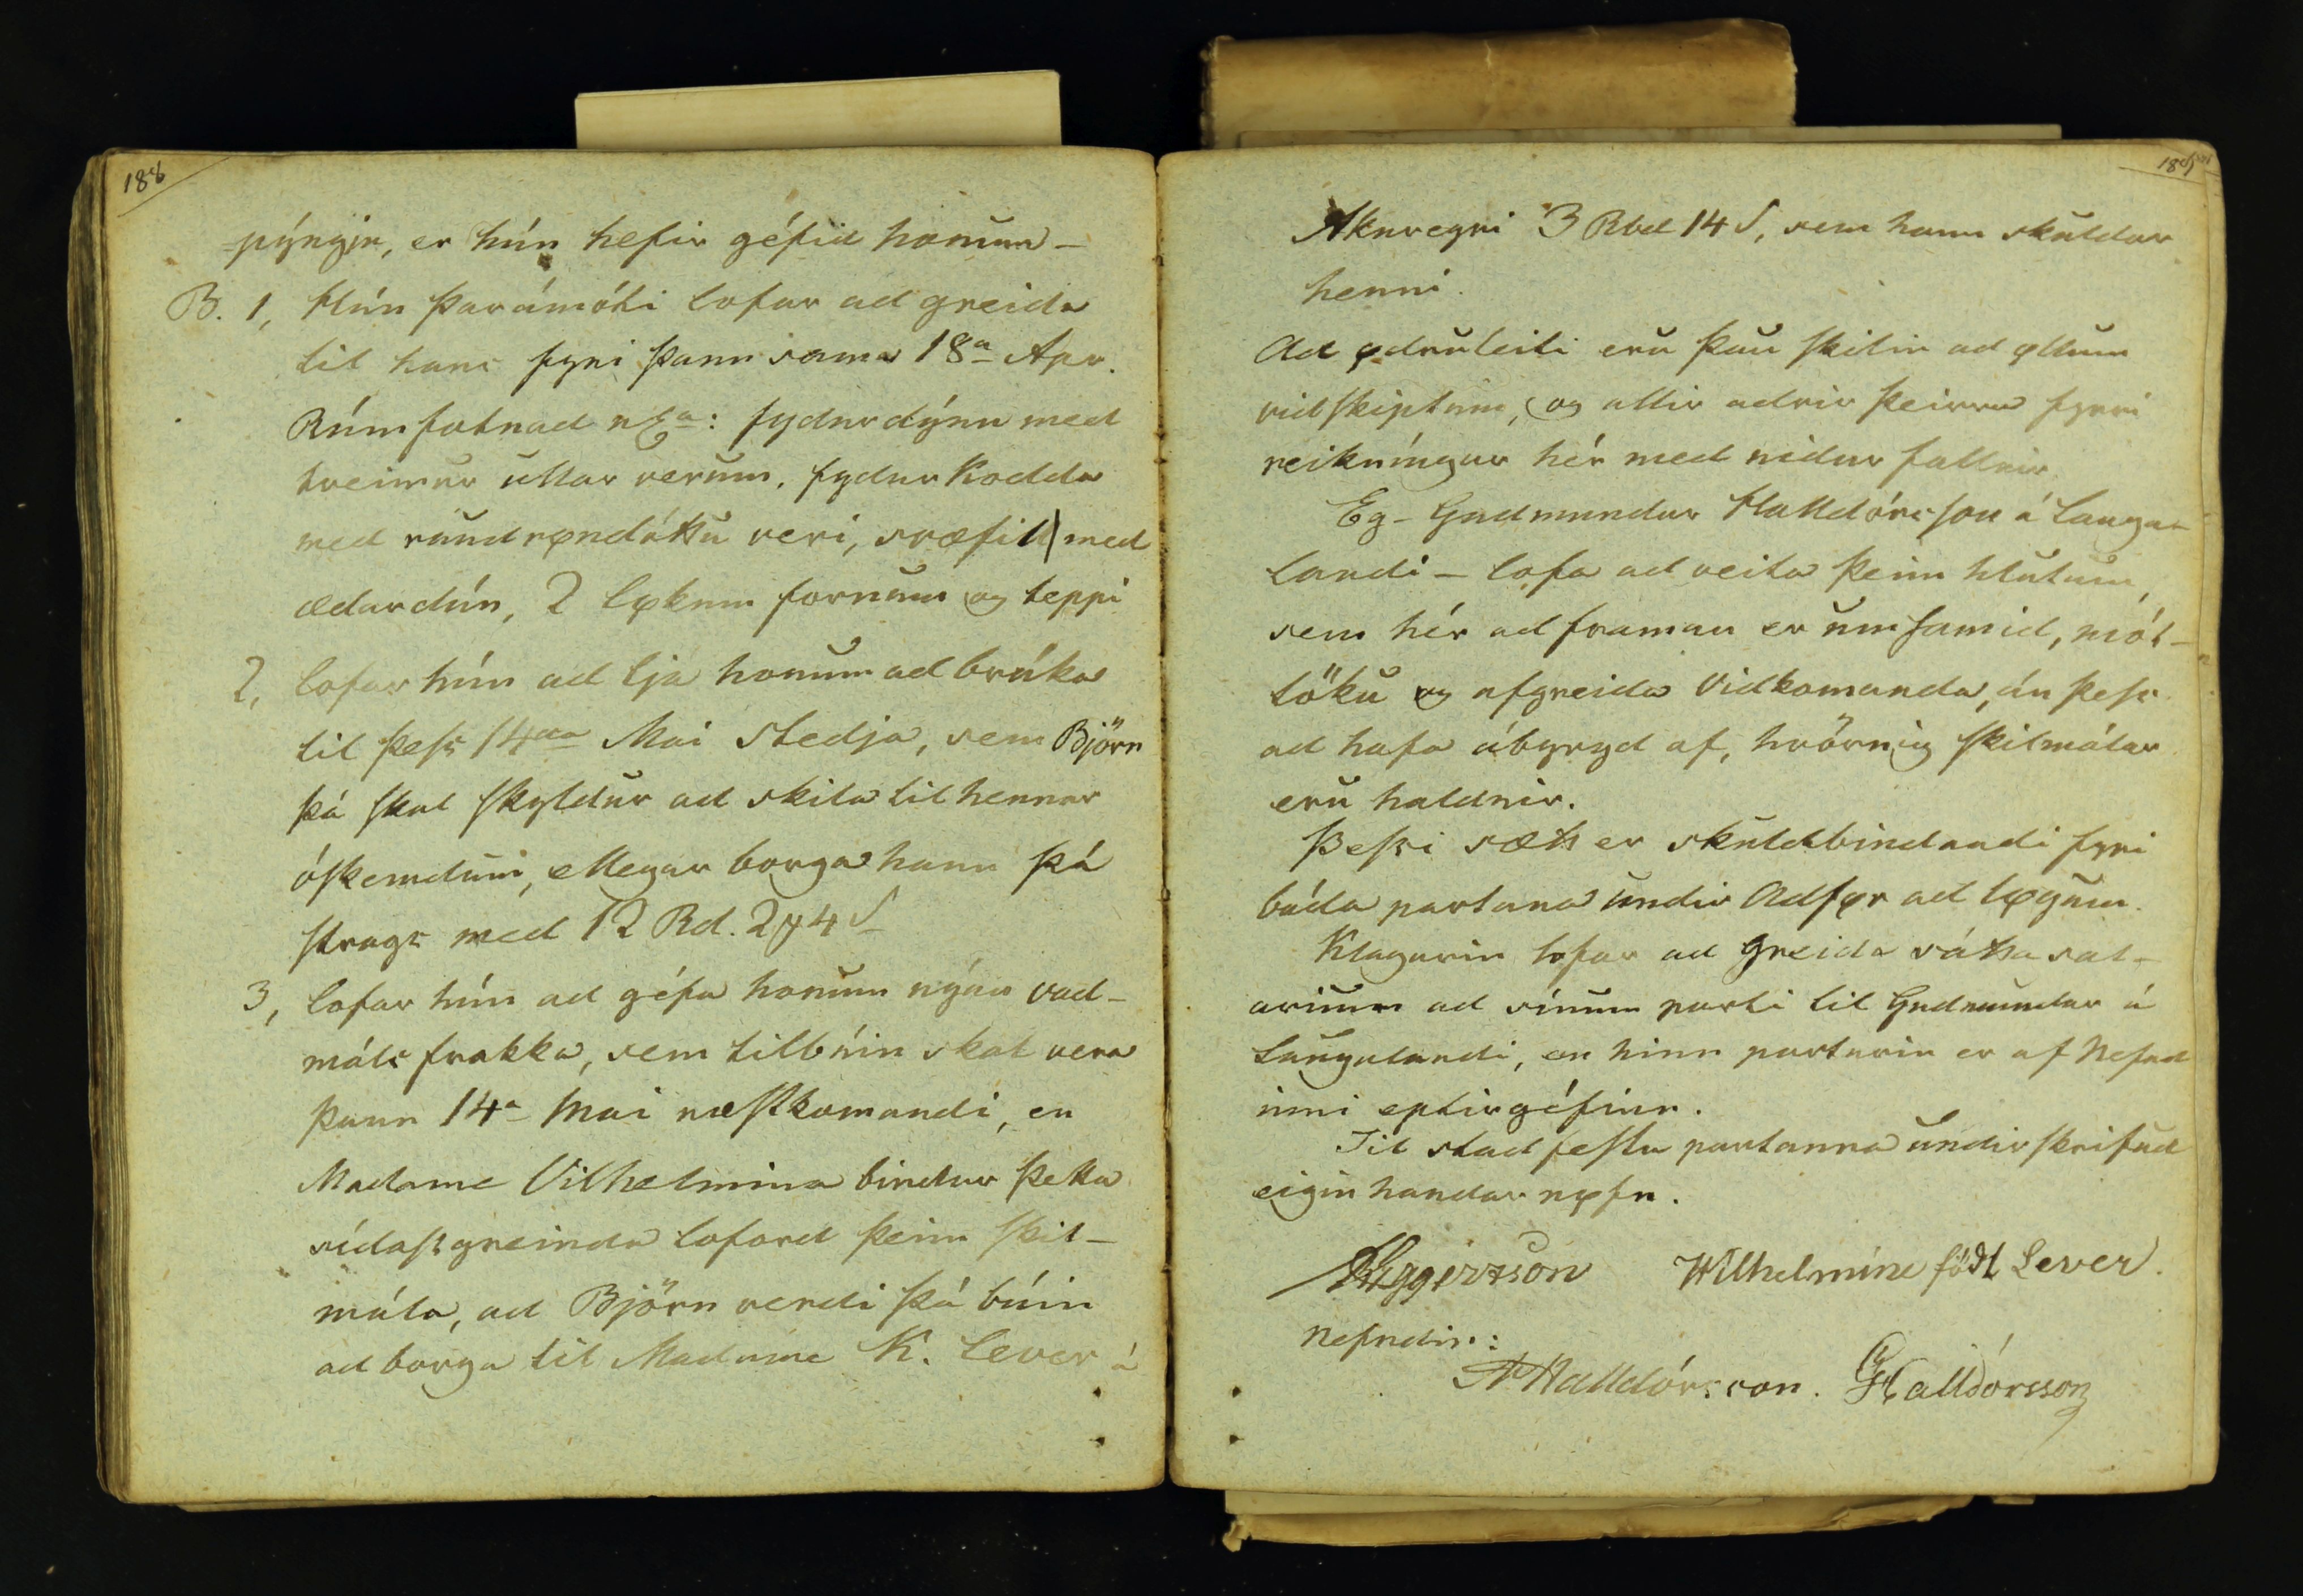 188
pýngju, er hún hefir géfid honum –
B. 1, Hún þarámóti lofar ad greida
til hans fyri þann sama 18a Apr.
Rúmfatnad nga: fydurdýnu med
tveimur ullar verum, fydur Kodda
med rundrøndóttu veri, svæfil med
ædardún, 2 løkum fornum og teppi
2, lofar hún ad ljá honum ad brúka
til þess 14da Mai Stedja, sem Björn
þá skal skyldur ad skila til hennar
óskemdum, ellegar borga hann þá
strags med 12 Rd. 24 S
3, lofar hún ad géfa honum nýan vad-
máls frakka, sem tilbúin skal vera
þann 14a Mai næstkomandi, en
Madame Vilhelmina bindur þetta
sídastgreinda loford þeim skil-
mála, ad Björn verdi þá búin
ad borga til Madame K. Lever á
189
Akureyri 3 Rbd 14 S, sem hann skuldar
henni.
Ad ødruleiti eru þau skilin ad øllum
vidskiptum, og allir adrir þeirra fyrri
reikníngar hér med nidur fallnir.
Eg – Gudmundur Halldórsson á Lauga-
landi – lofa ad veita þeim hlutum,
sem hér ad framan er umsamid, mót-
töku og afgreida Vidkomanda, án þess
ad hafa ábyrgd af, hvörnig skilmálar
eru haldnir.
Þessi sætt er skuldbindandi fyri
báda partana undir Adfør ad løgum.
Klagarin lofar ad greida sátta sal-
arium ad sínum parti til Gudmundar á
Laugalandi, en hinn parturin er af Nefnd
inni eptirgéfinn.
Til stadfestu partanna undirskrifud
eiginhandar nøfn.
Eggertsson Wilhelmine födt Lever.
Nefndin:
Halldórsson. GHalldórsson